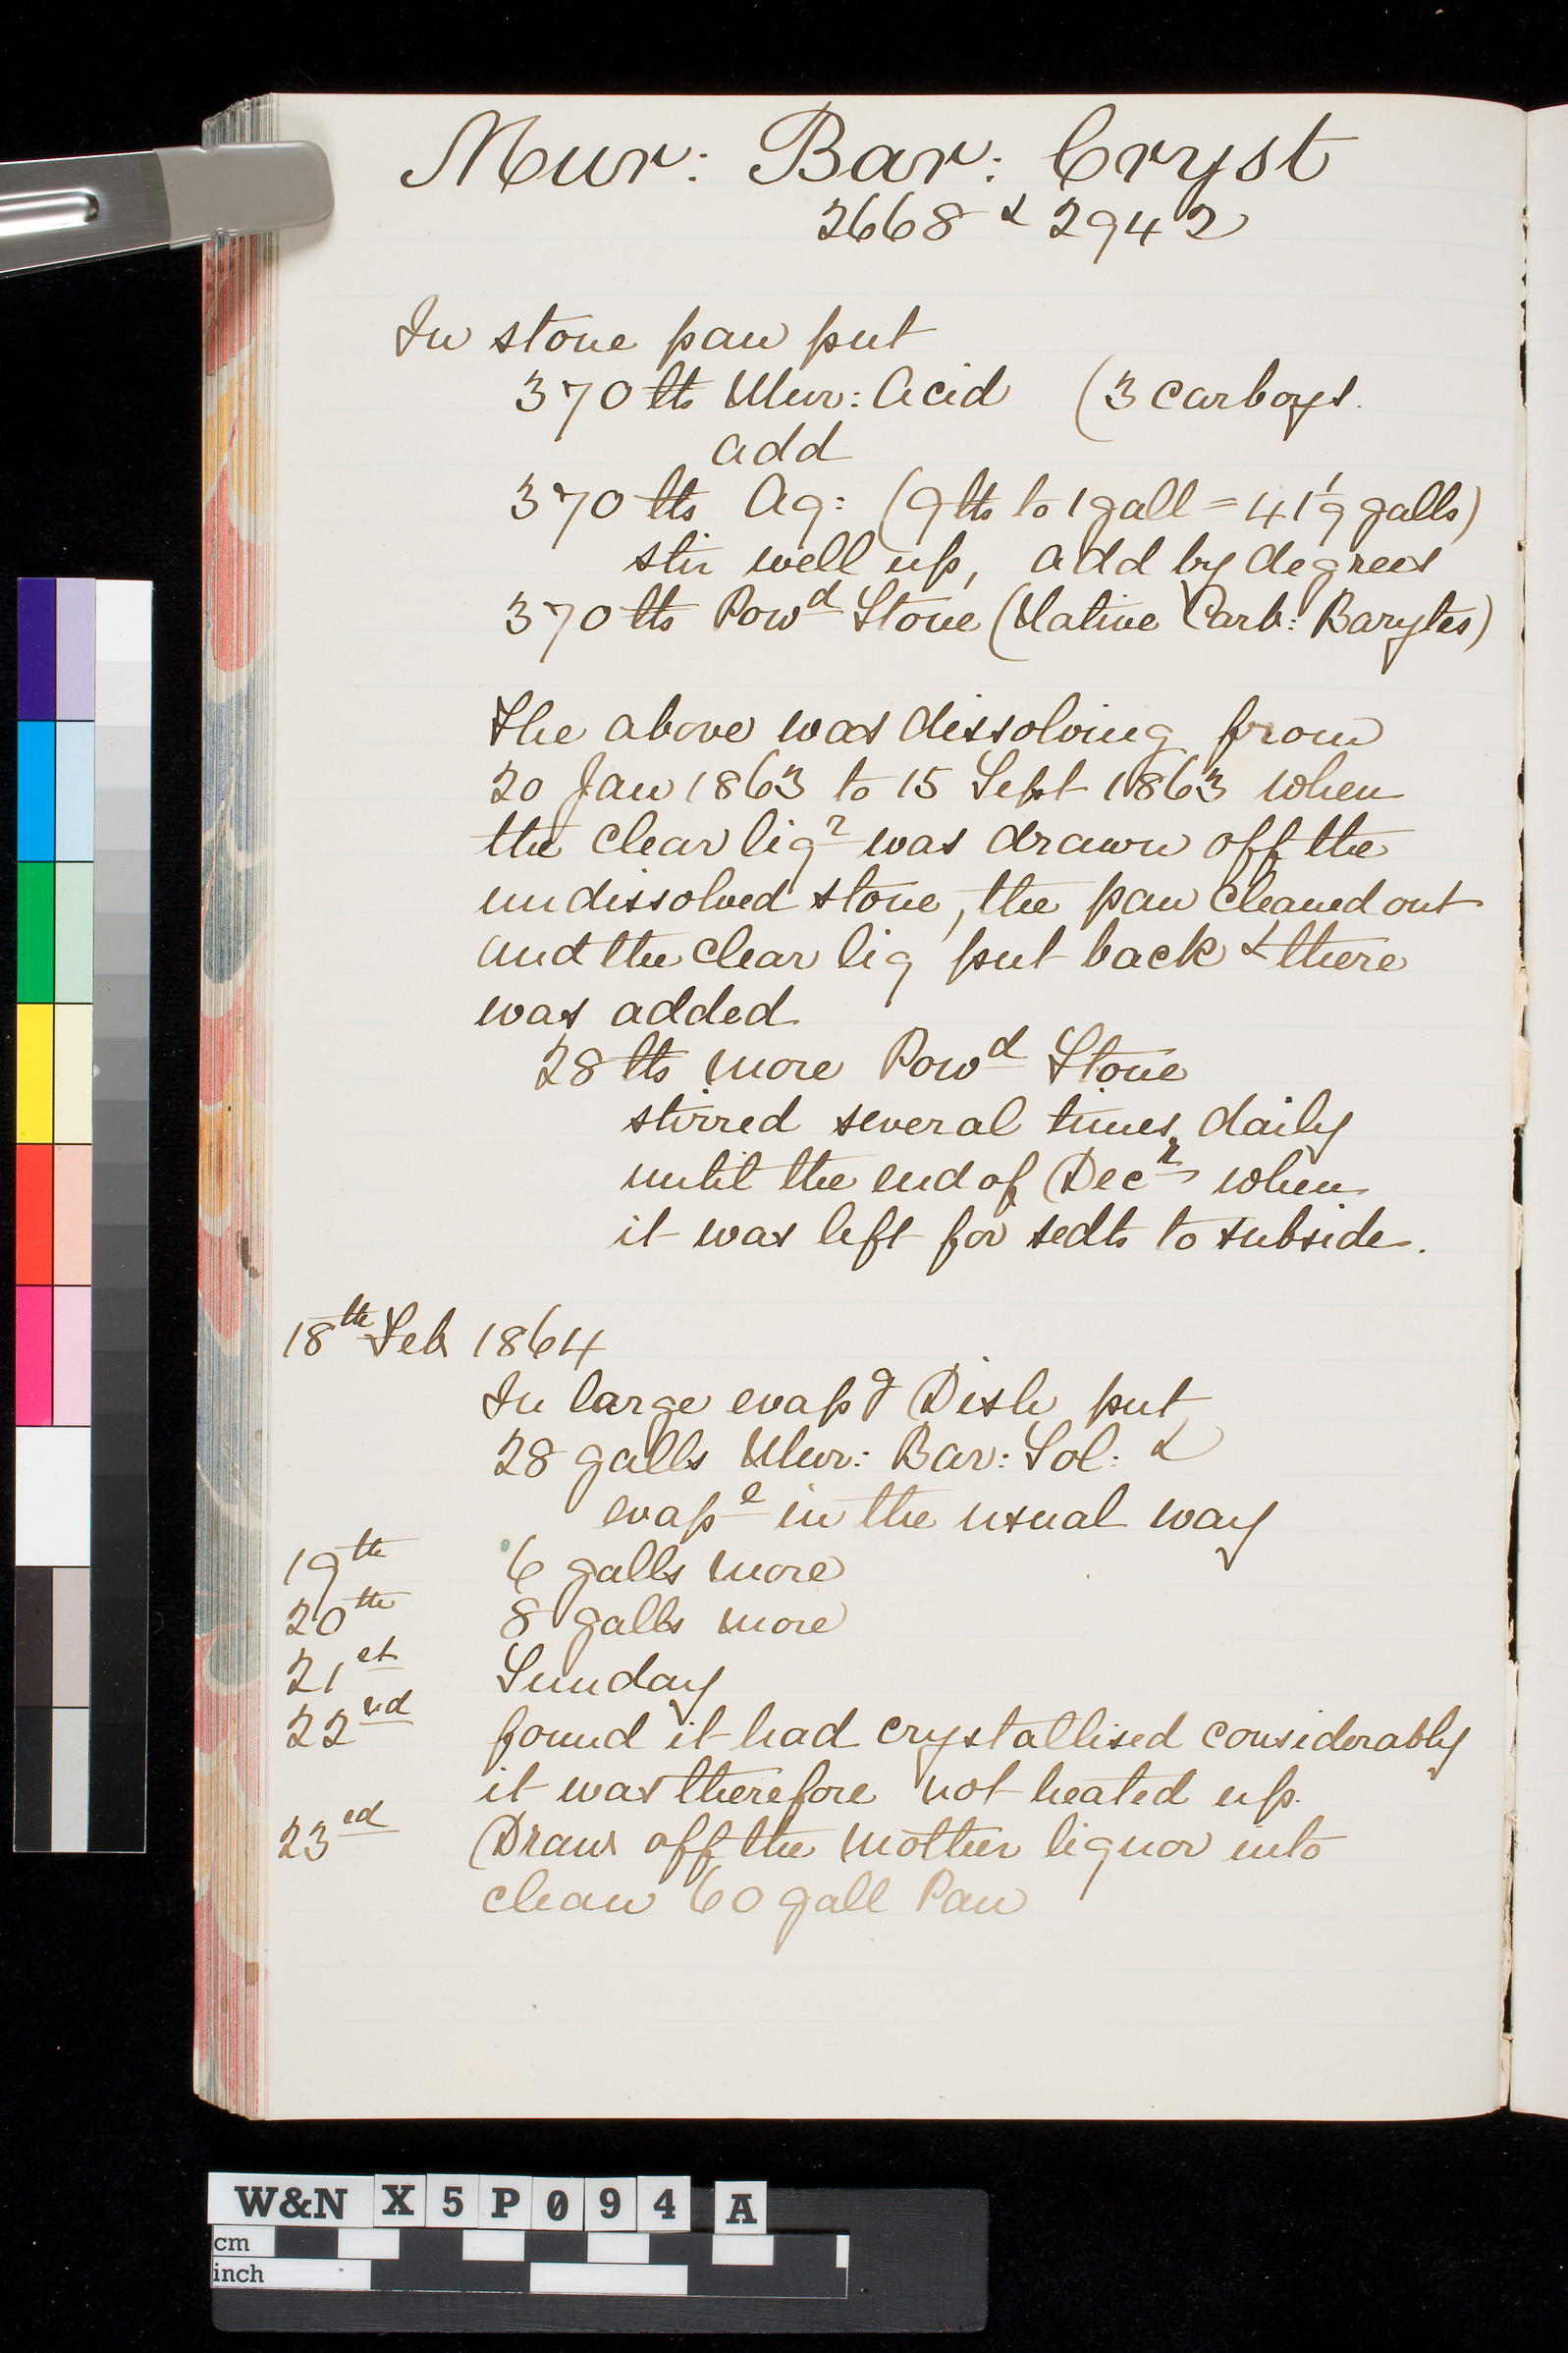 Mur: Bar: Cryst
2668 & 2942
In stone pan put
370 lbs Mur: Acid (3 carboys.
add
370 lbs Aq: (9 lbs to 1 gall = 41 1/9 galls)
stir well up, add by degrees
370 lbs Powd Stone (Native Carb: Barytes)
The above was dissolving from
20 Jan 1863 to 15 Sept 1863 when
the clear liqr was drawn off the
undissolved stone, the pan cleaned out
and the clear liq put back & there
was added
28 lbs more Powd Stone
stirred several times daily
until the end of Decr when
it was left for sedts to subside.
18th Feb 1864
In large evapg Dish put
28 galls Mur: Bar: Sol: &
evape in the usual way
19th 6 galls more
20th 8 galls more
21st Sunday
22nd found it had crystallised considerably
it was therefore not heated up.
23rd Draw off the mother liquor into
clean 60 gall Pan
W&N X5P094 A
cm
inch